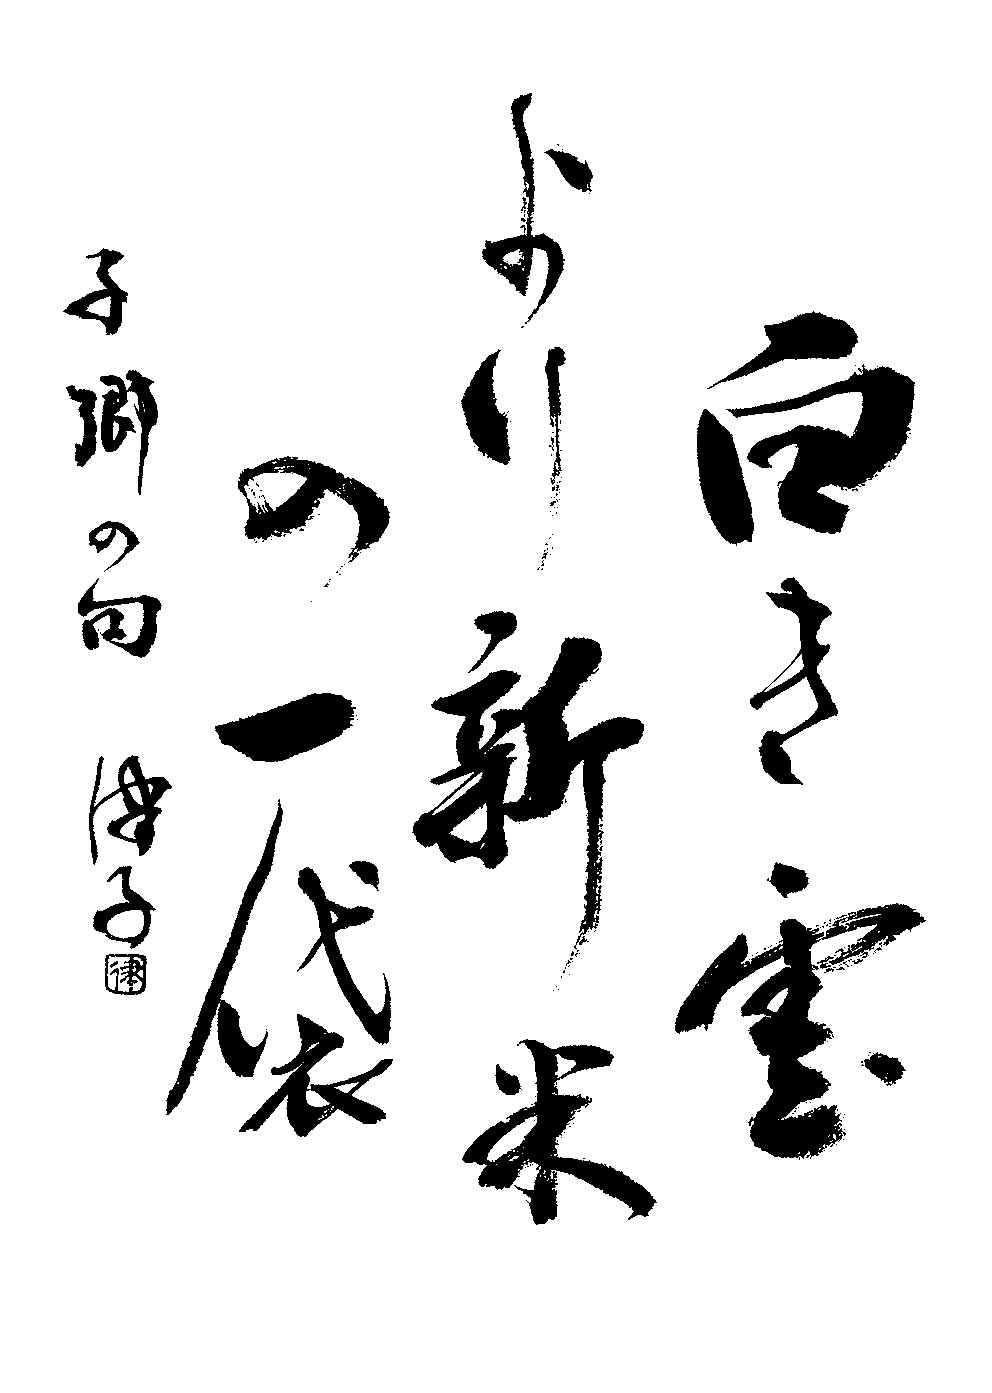 白き雲
より新米
の一袋
子郷の句 律子
律